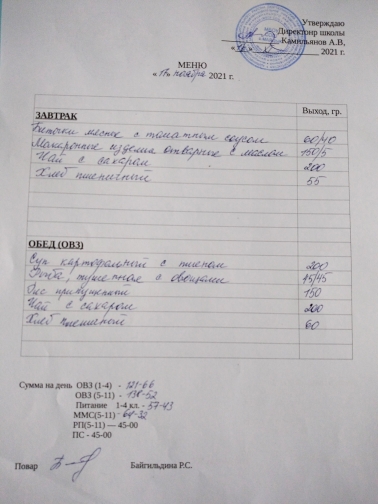 Утверждаю
Директоир школы
Камильянов А.В,
2021 г.
МЕНЮ
«17» ноября 2021 г.
Выход, гр.
ЗАВТРАК
Биточки мясные с томатном соусом 60/40
Макаронные изделия отварные с маслом 150/5
Чай с сахаром 200
Хлеб пшеничный 55
ОБЕД (ОВЗ)
Суп картофельный с пшеном 200
Рыба, тушенная с овощами 45/45
Рис припущенный 150
Чай с сахаром 200
Хлеб пшеничный 60
Сумма на день ОВЗ (1-4) - 121-66
ОВЗ (5-11) - 138-52
Питание 1-4 кл. - 57-43
ММС(5-11) - 64-32
РП(5-11) — 45-00
ПС - 45-00
Повар Байгильдина Р.С.